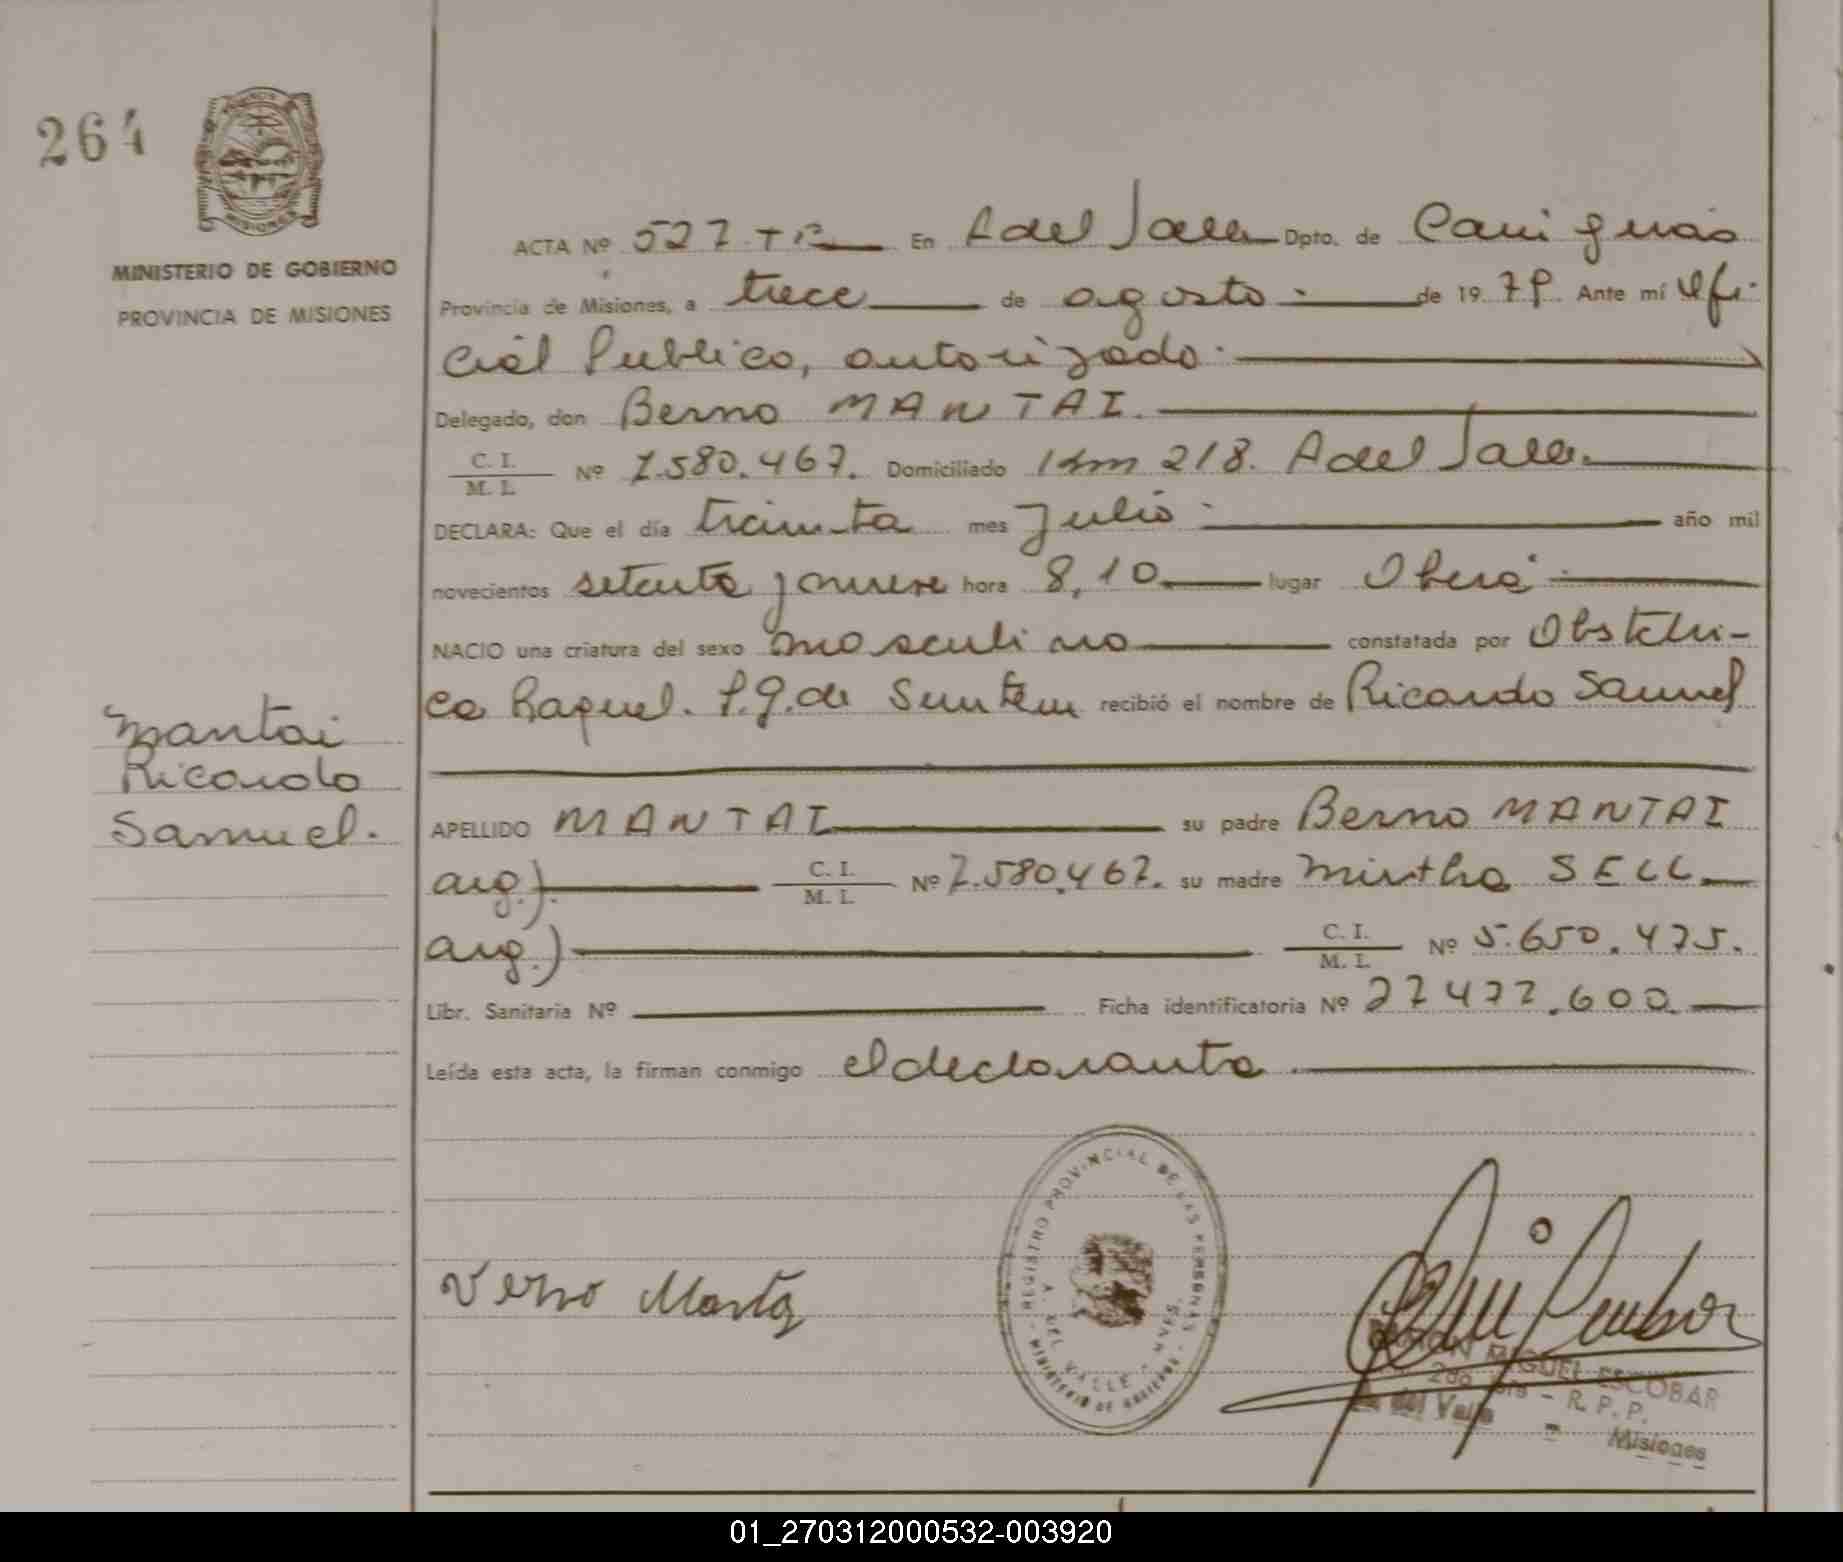 264
MINISTERIO DE GOBIERNO
PROVINCIA DE MISIONES
ACTA Nº 527 En A del Valle Dpto. de Cainguás
Provincia de Misiones, a trece de agosto de 1979. Ante mí Ofi-
cial Publico, autorizado.
Delegado, don Berno MANTAI.
C. I. / M. I. Nº 7.580.467. Domiciliado Km 218. A del Valle.
DECLARA: Que el día treinta mes Julio año mil
novecientos setenta y nueve hora 8,10 lugar Oberá
NACIO una criatura del sexo masculino constatada por Obstetri-
ca Raquel. P.G. de Suntem recibió el nombre de Ricardo Samuel
Mantai
Ricardo
Samuel.
APELLIDO MANTAI su padre Berno MANTAI
arg.). C. I. / M. I. Nº 7.580.467. su madre Mirtha SELL
arg.) C. I. / M. I. Nº 5.650.475.
Libr. Sanitaria Nº Ficha identificatoria Nº 27.477.600.
Leída esta acta, la firman conmigo el declarante
REGISTRO PROVINCIAL DE LAS PERSONAS
MINISTERIO DE GOBIERNO
A. DEL VALLE - MNES.
RAMON MIGUEL ESCOBAR
R. P. P.
A. del Valle - Misiones
01_270312000532-003920